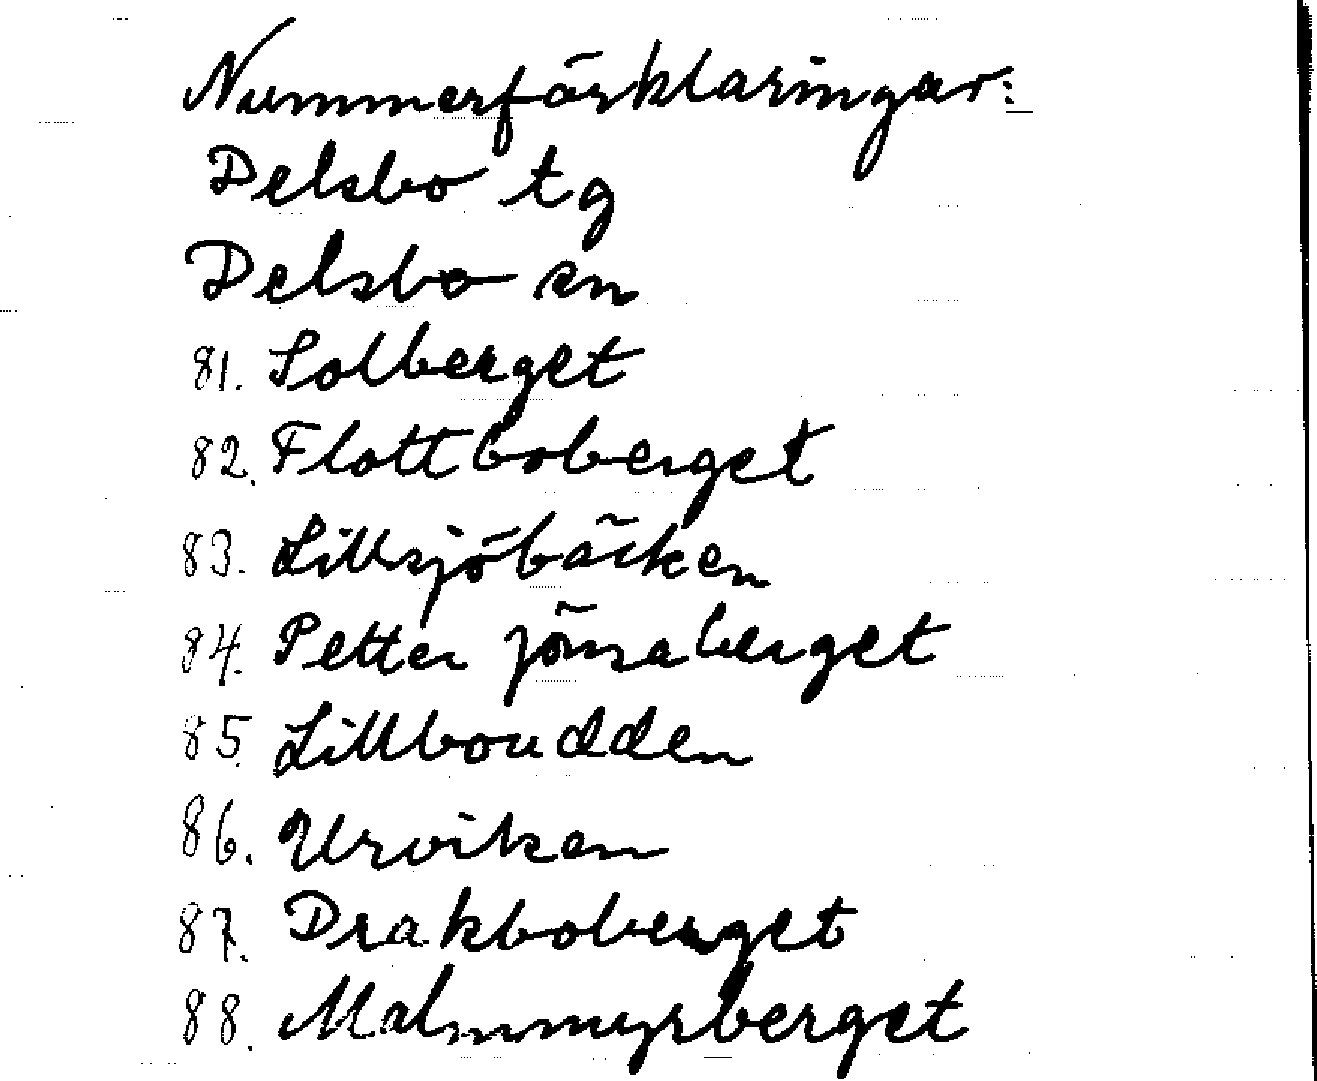 Nummerförklaringar:
Delsbo tg
Delsbo sn
81. Solberget
82. Flottboberget
83. Lillsjöbäcken
84. Petter jönsaberget
85. Lillboudden
86. Urviken
87. Drakboberget
88. Malmmyrberget